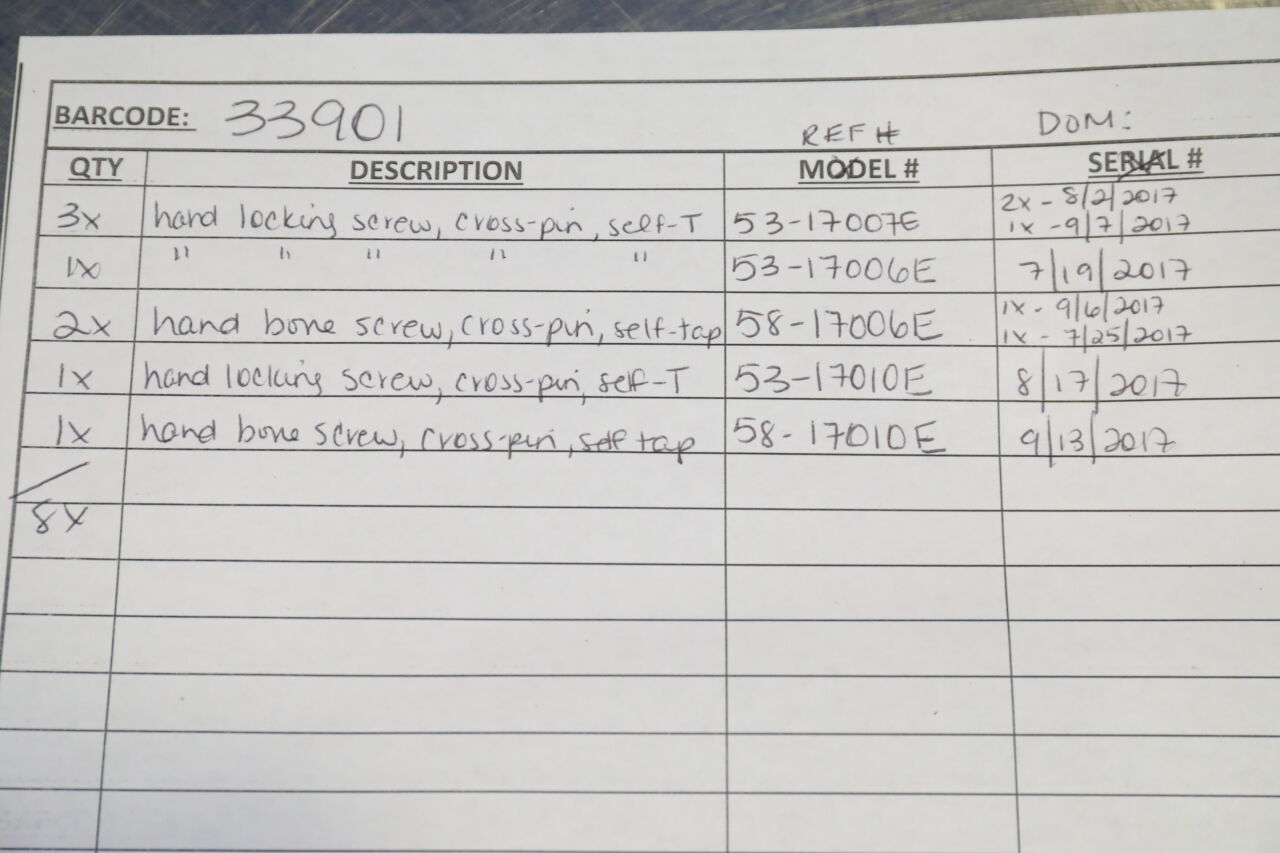 BARCODE: 33901
REF # DOM:
QTY DESCRIPTION MODEL # SERIAL #
3x hand locking screw, cross-pin, self-T 53-17007E 2x - 8/2/2017
1x - 9/7/2017
1x " " " " " 53-17006E 7/19/2017
2x hand bone screw, cross-pin, self-tap 58-17006E 1x - 9/6/2017
1x - 7/25/2017
1x hand locking screw, cross-pin, self-T 53-17010E 8/17/2017
1x hand bone screw, cross-pin, self tap 58-17010E 9/13/2017
8x